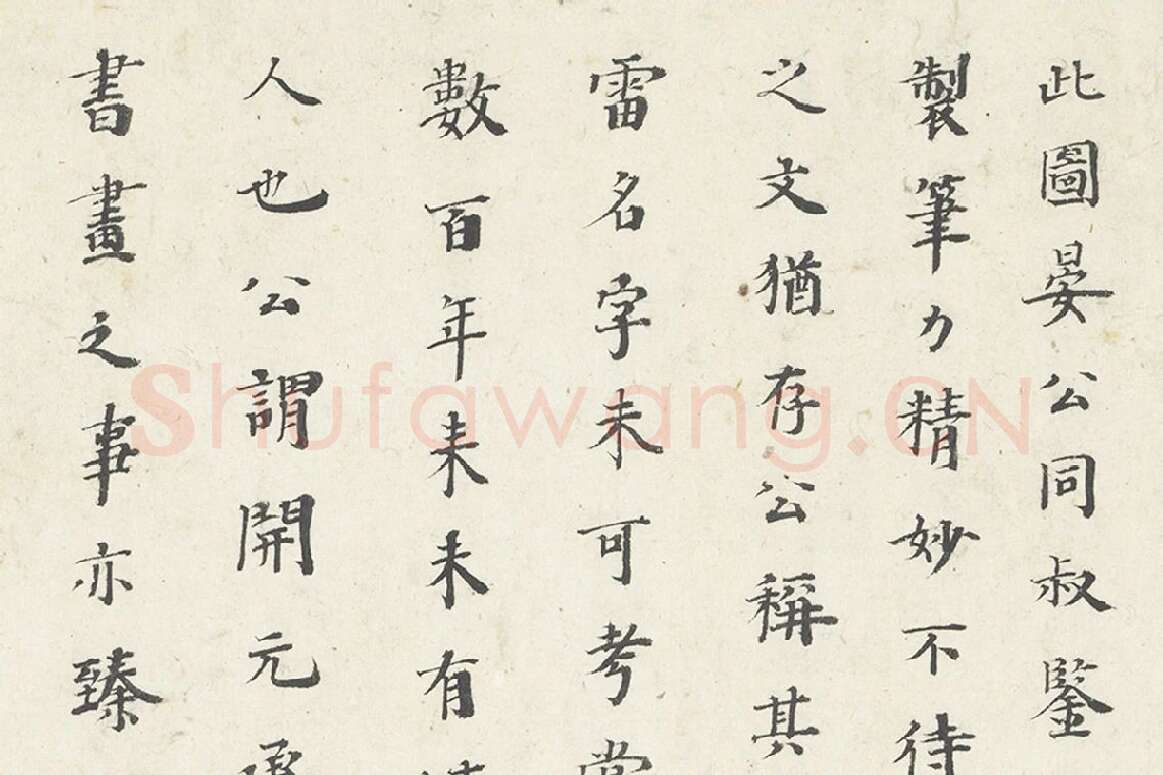 此圖晏公同叔鑒
製筆力精妙不待
之文猶存公稱其
雷名字未可考當
數百年来未有
人也公謂開元
書畫之事亦臻
Shufawang.CN